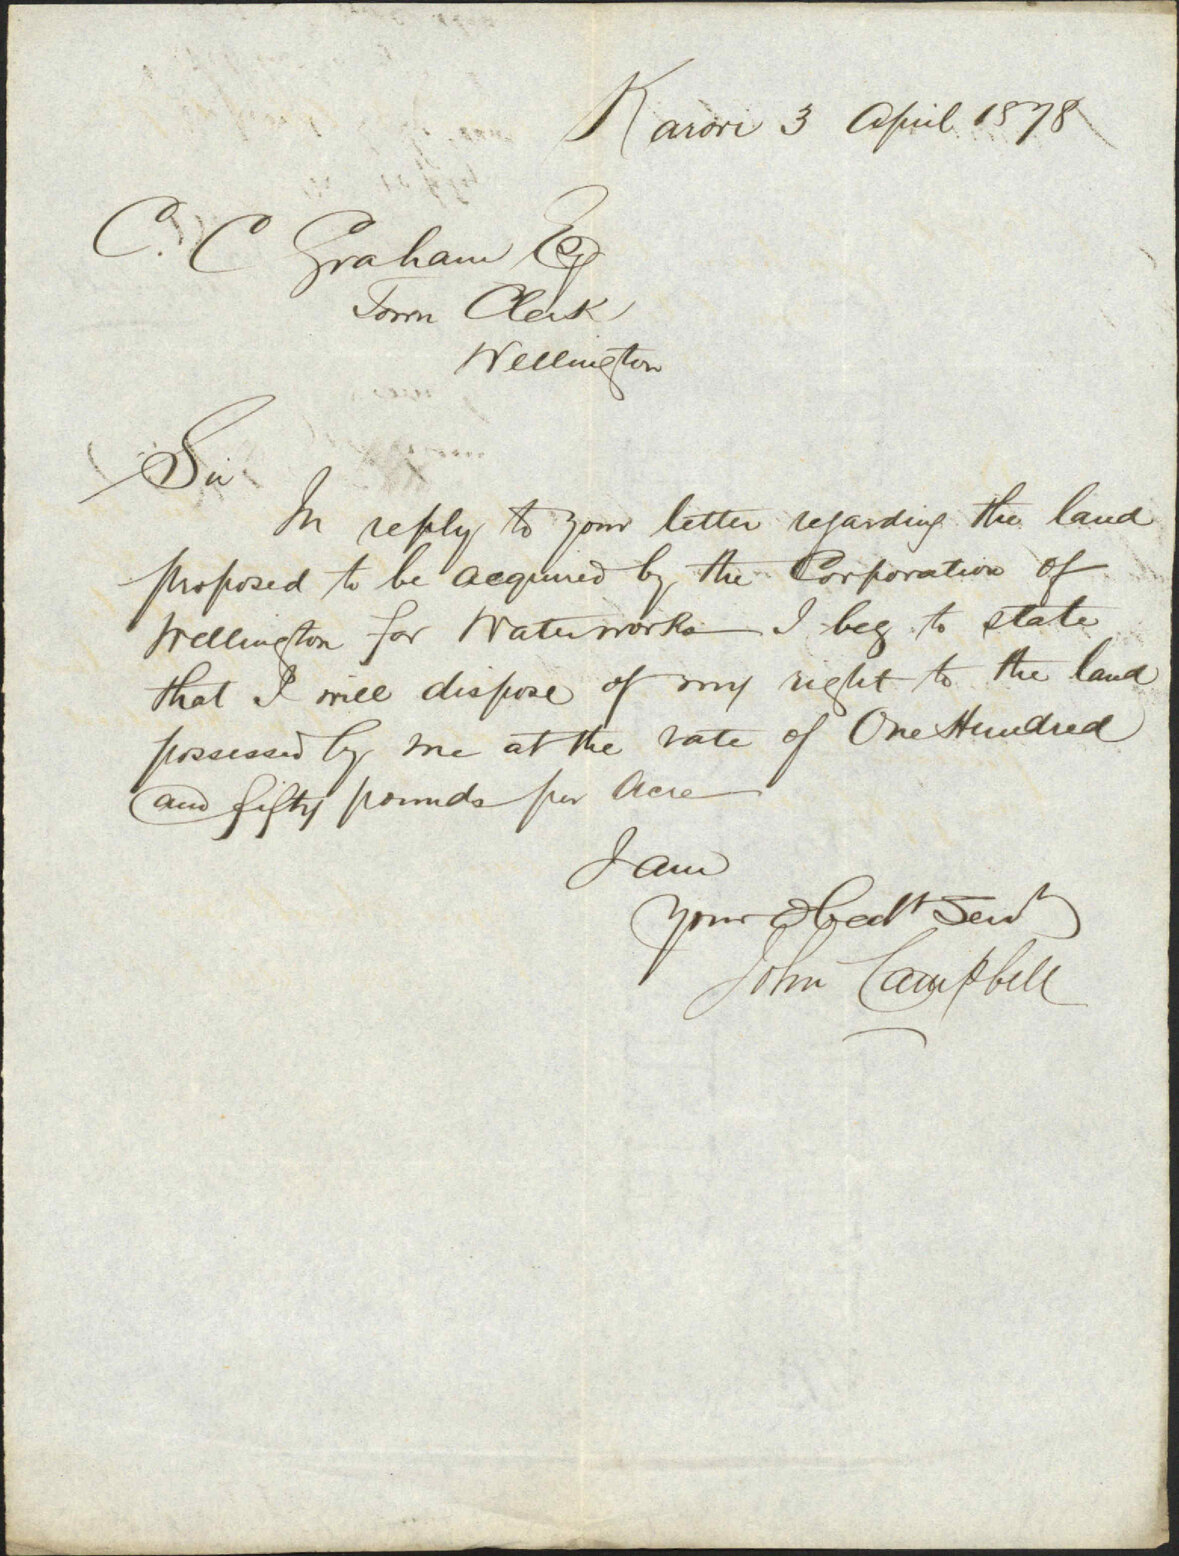 Karori 3 April 1878
C. C Graham Esq
Town Clerk
Wellington
Sir
In reply to your letter regarding the land
proposed to be acquired by the Corporation of
Wellington for Waterworks I beg to state
that I will dispose of my right to the land
possessed by me at the rate of One Hundred
and fifty pounds per Acre
I am
Your Obedt Servt
John Campbell